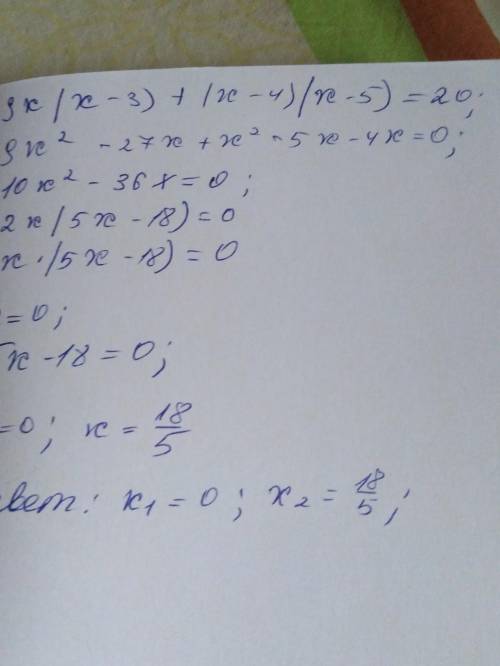 9x(x-3)+(x-4)(x-5)=20;
9x² -27x+x²-5x-4x=0;
10x²-36x=0;
2x(5x-18)=0
x·(5x-18)=0
=0;
5x-18=0;
=0; x=18/5
вет: x₁=0; x₂=18/5;